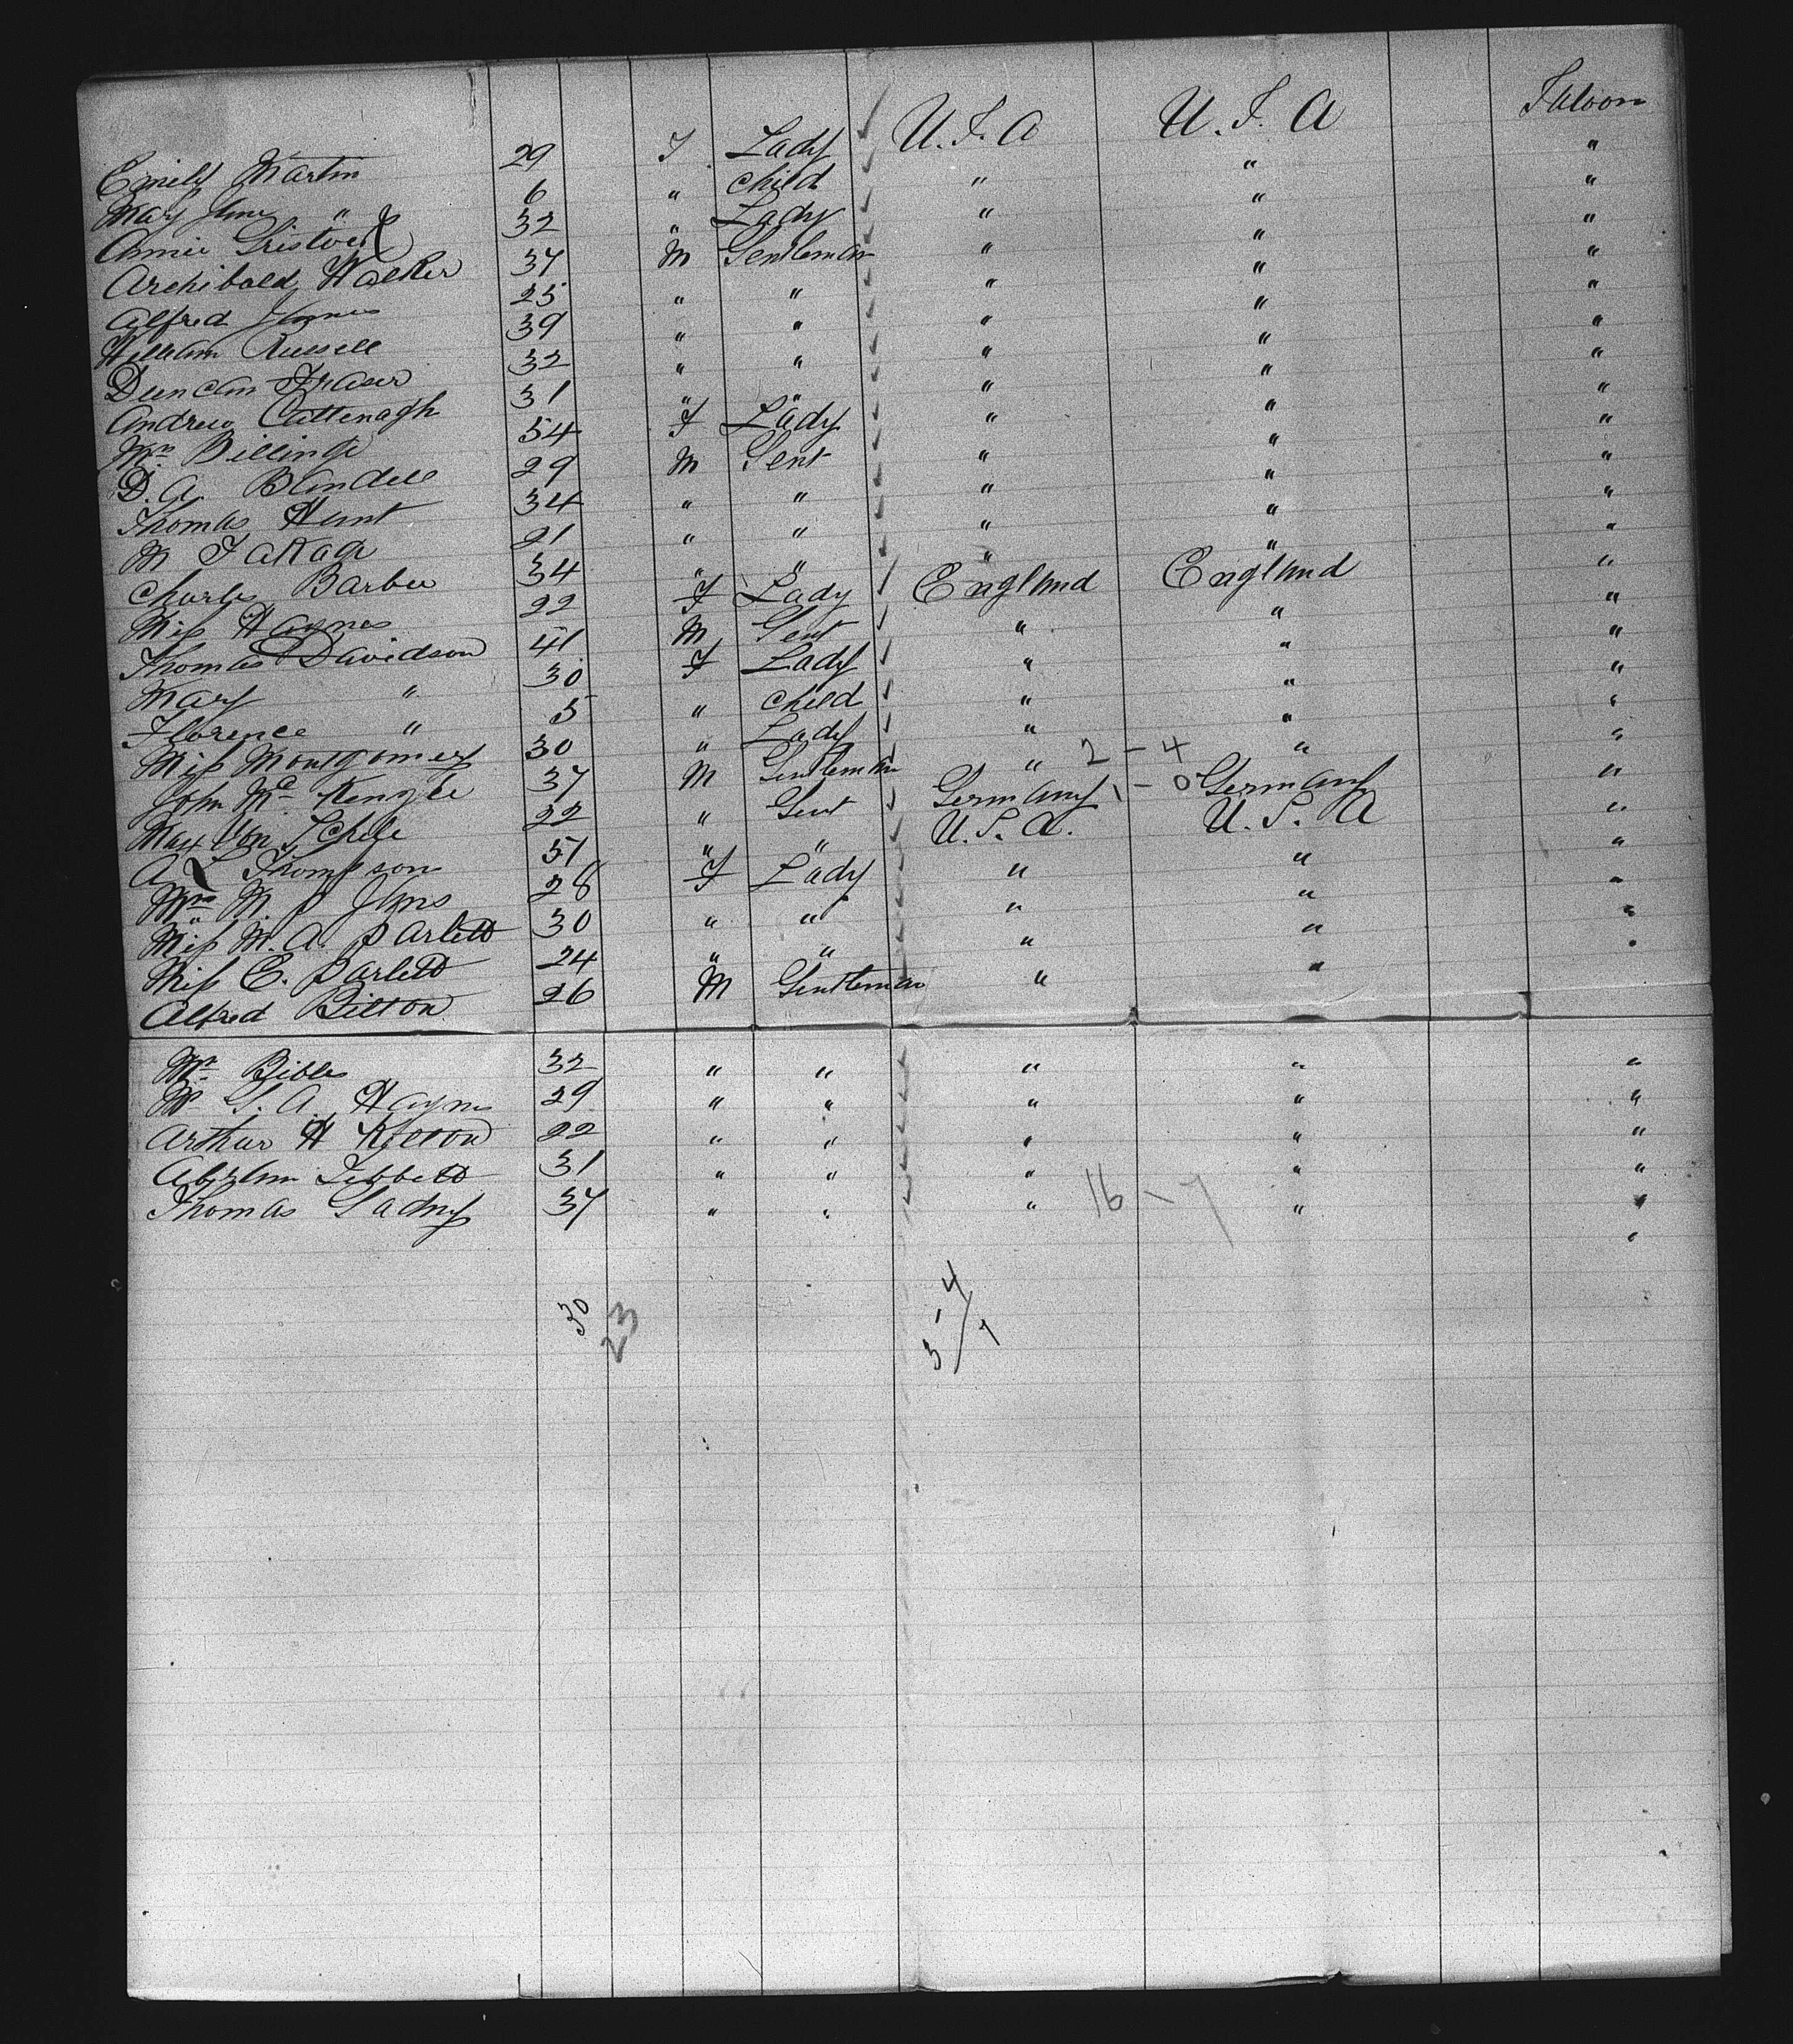 Emily Martin 29 F Lady U.S.A U.S.A Saloon
May Jane " 6 " Child " " "
Annie Gristock 32 " Lady " " "
Archibald Walker 37 M Gentleman " " "
Alfred James 25 " " " " "
William Russell 39 " " " " "
Duncan Fraser 32 " " " " "
Andrew Cattenagh 31 " " " " "
Mrs Billings 54 F Lady " " "
D. A. Blundell 29 M Gent " " "
Thomas Hunt 34 " " " " "
M Takagi 21 " " " " "
Charles Barber 34 " " " " "
Miss Haynes 22 F Lady England England "
Thomas Davidson 41 M Gent " " "
Mary " 30 F Lady " " "
Florence " 5 " Child " " "
Miss Montgomery 30 " Lady " " "
John Mc Kenzie 37 M Gentleman " 2-4 " "
Max Von 22 " Gent Germany 1-0 Germany "
A L Thompson 51 " " U.S.A. U.S.A "
Mrs M. P 28 F Lady " " "
Miss M. A. Parlett 30 " " " " "
Miss E. Parlett 24 " " " " "
Alfred Bilton 26 M Gentleman " " "
Mr Bibles 32 " " " " "
Mr G. A. Haynes 29 " " " " "
Arthur H Kilton 22 " " " " "
Abraham Tebbett 31 " " " " "
Thomas Gadney 37 " " " 16-7 " "
30 23
4
3/7